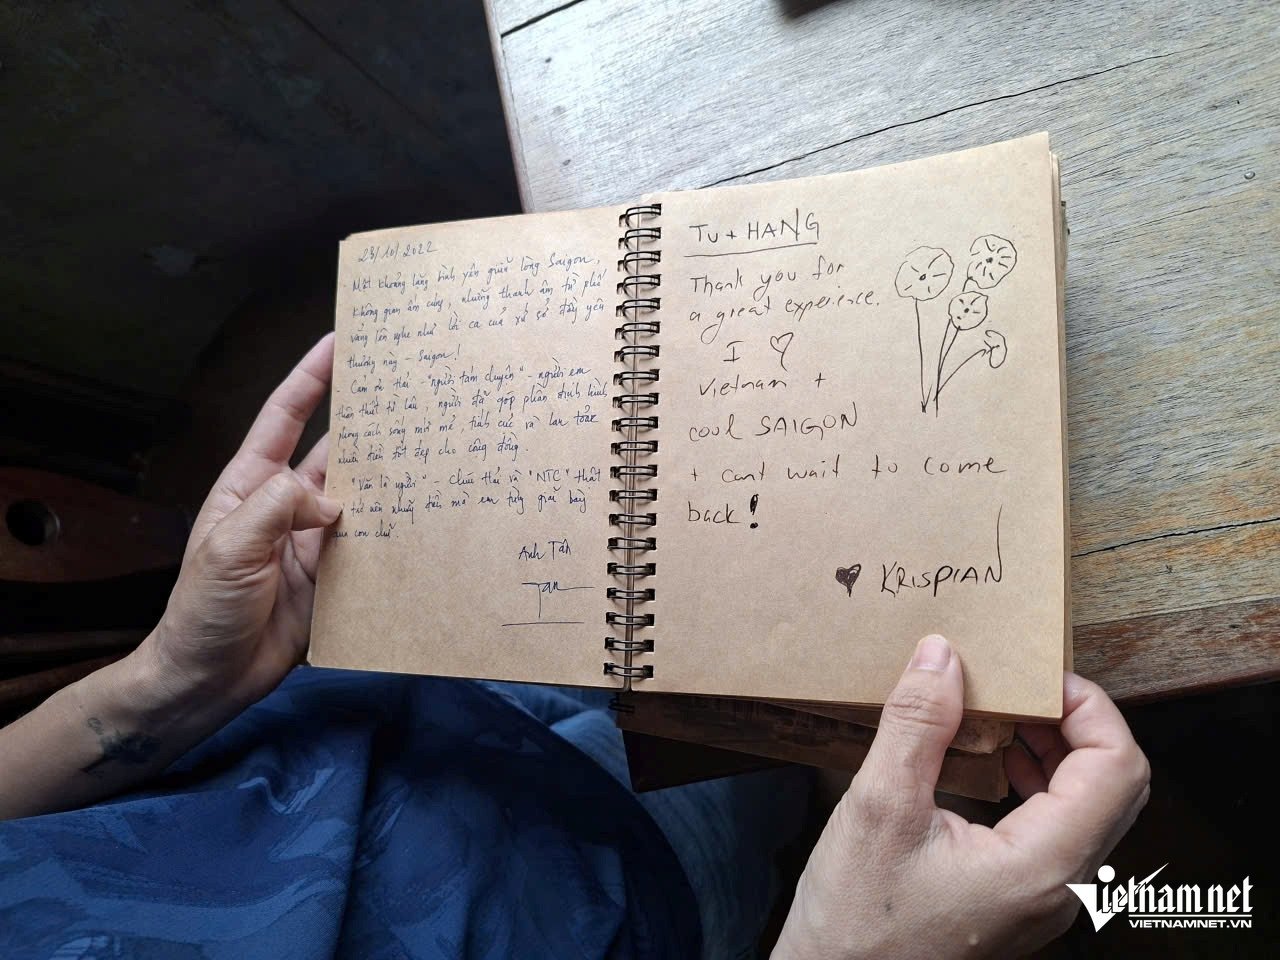 23/10/2022
- Một khoảng lặng bình yên giữa lòng Saigon,
không gian ấm cúng, những thanh âm từ phố
vang lên nghe như lời ca của xứ sở đầy yêu
thương này - Saigon!
- Cảm ơn Thái - "người tám chuyện" - người em
thân thiết từ lâu, người đã góp phần định hình
phong cách sống mới mẻ, tích cực và lan toả
nhiều điều tốt đẹp cho cộng đồng.
"Văn là người" - chú Thái và "NTC" thật
tử tế nên những điều mà em từng giải bày
qua con chữ.
Anh Tân
Tan
TU + HANG
Thank you for
a great experience.
I ♡
Vietnam +
cool SAIGON
+ cant wait to come
back!
♥ KRISPIAN
Vietnamnet
VIETNAMNET.VN